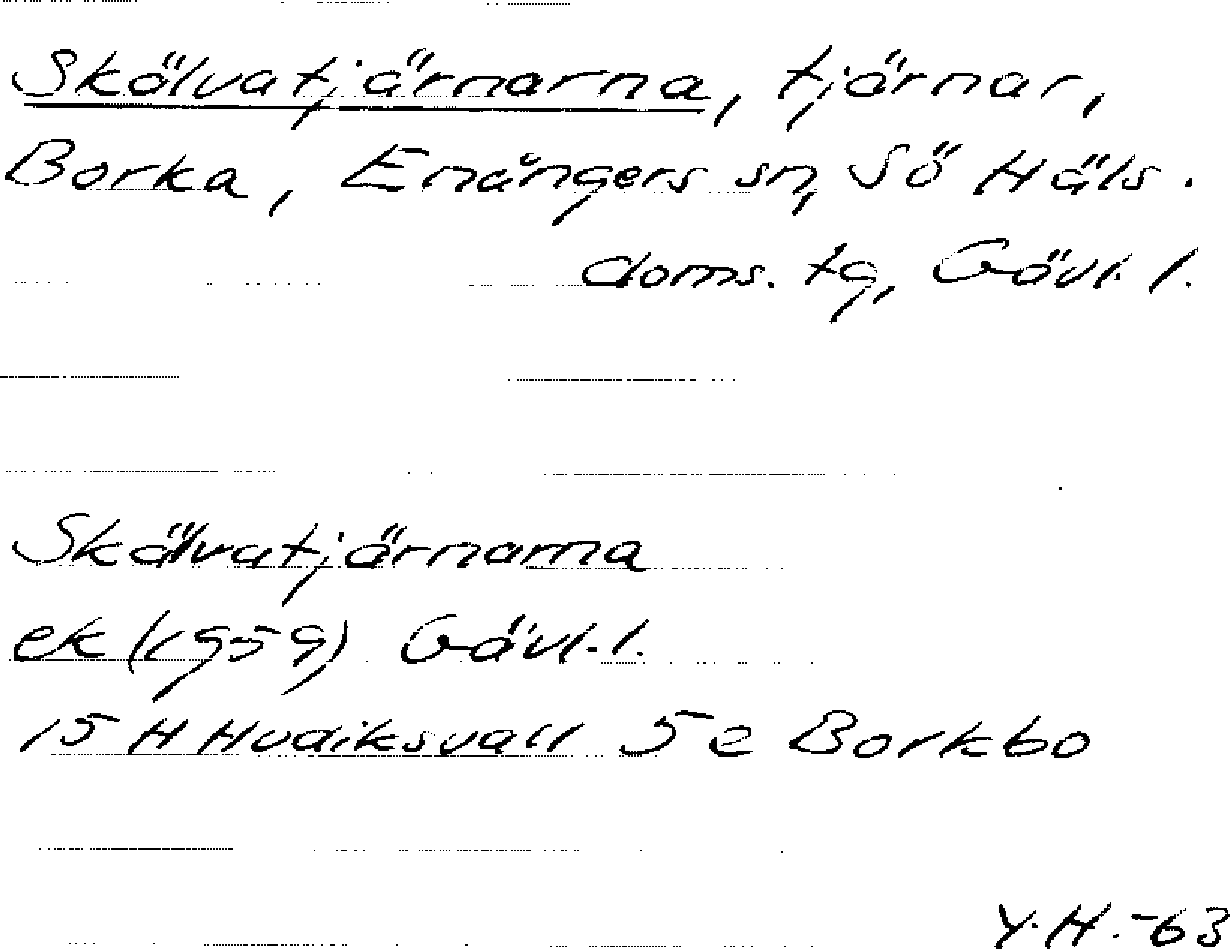 Skälvatjärnarna, tjärnar,
Borka, Enångers sn, Sö Häls.
doms. tg, Gävl. l.
Skälvatjärnarna
ek (1959) Gävl. l.
15 H Hudiksvall 5e Borkbo
Y.H. -63